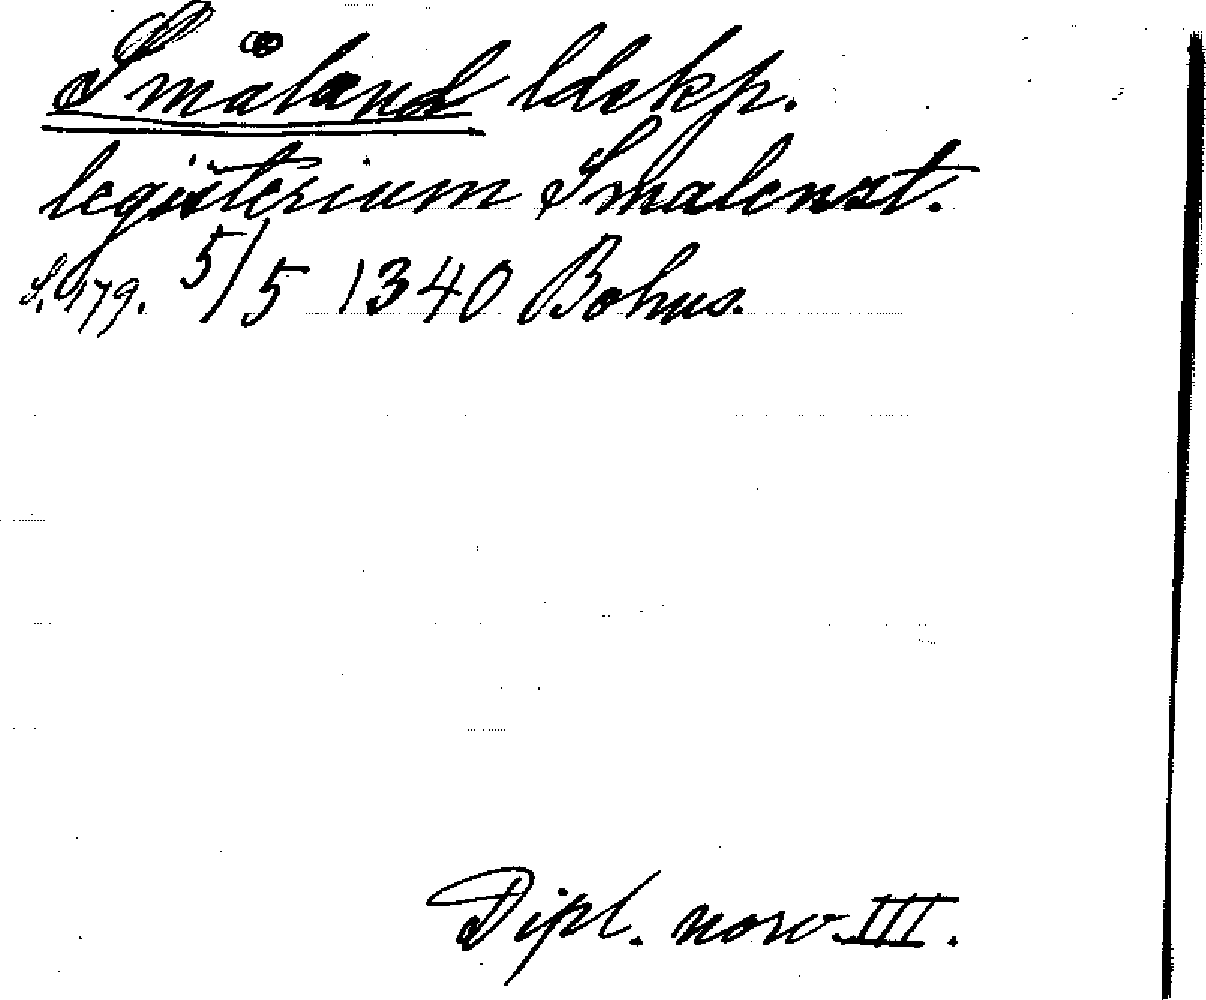 Småland ldskp.
legisterium Smalenst.
S. 179. 5/5 1340 Bohus.
Dipl. norv. III.